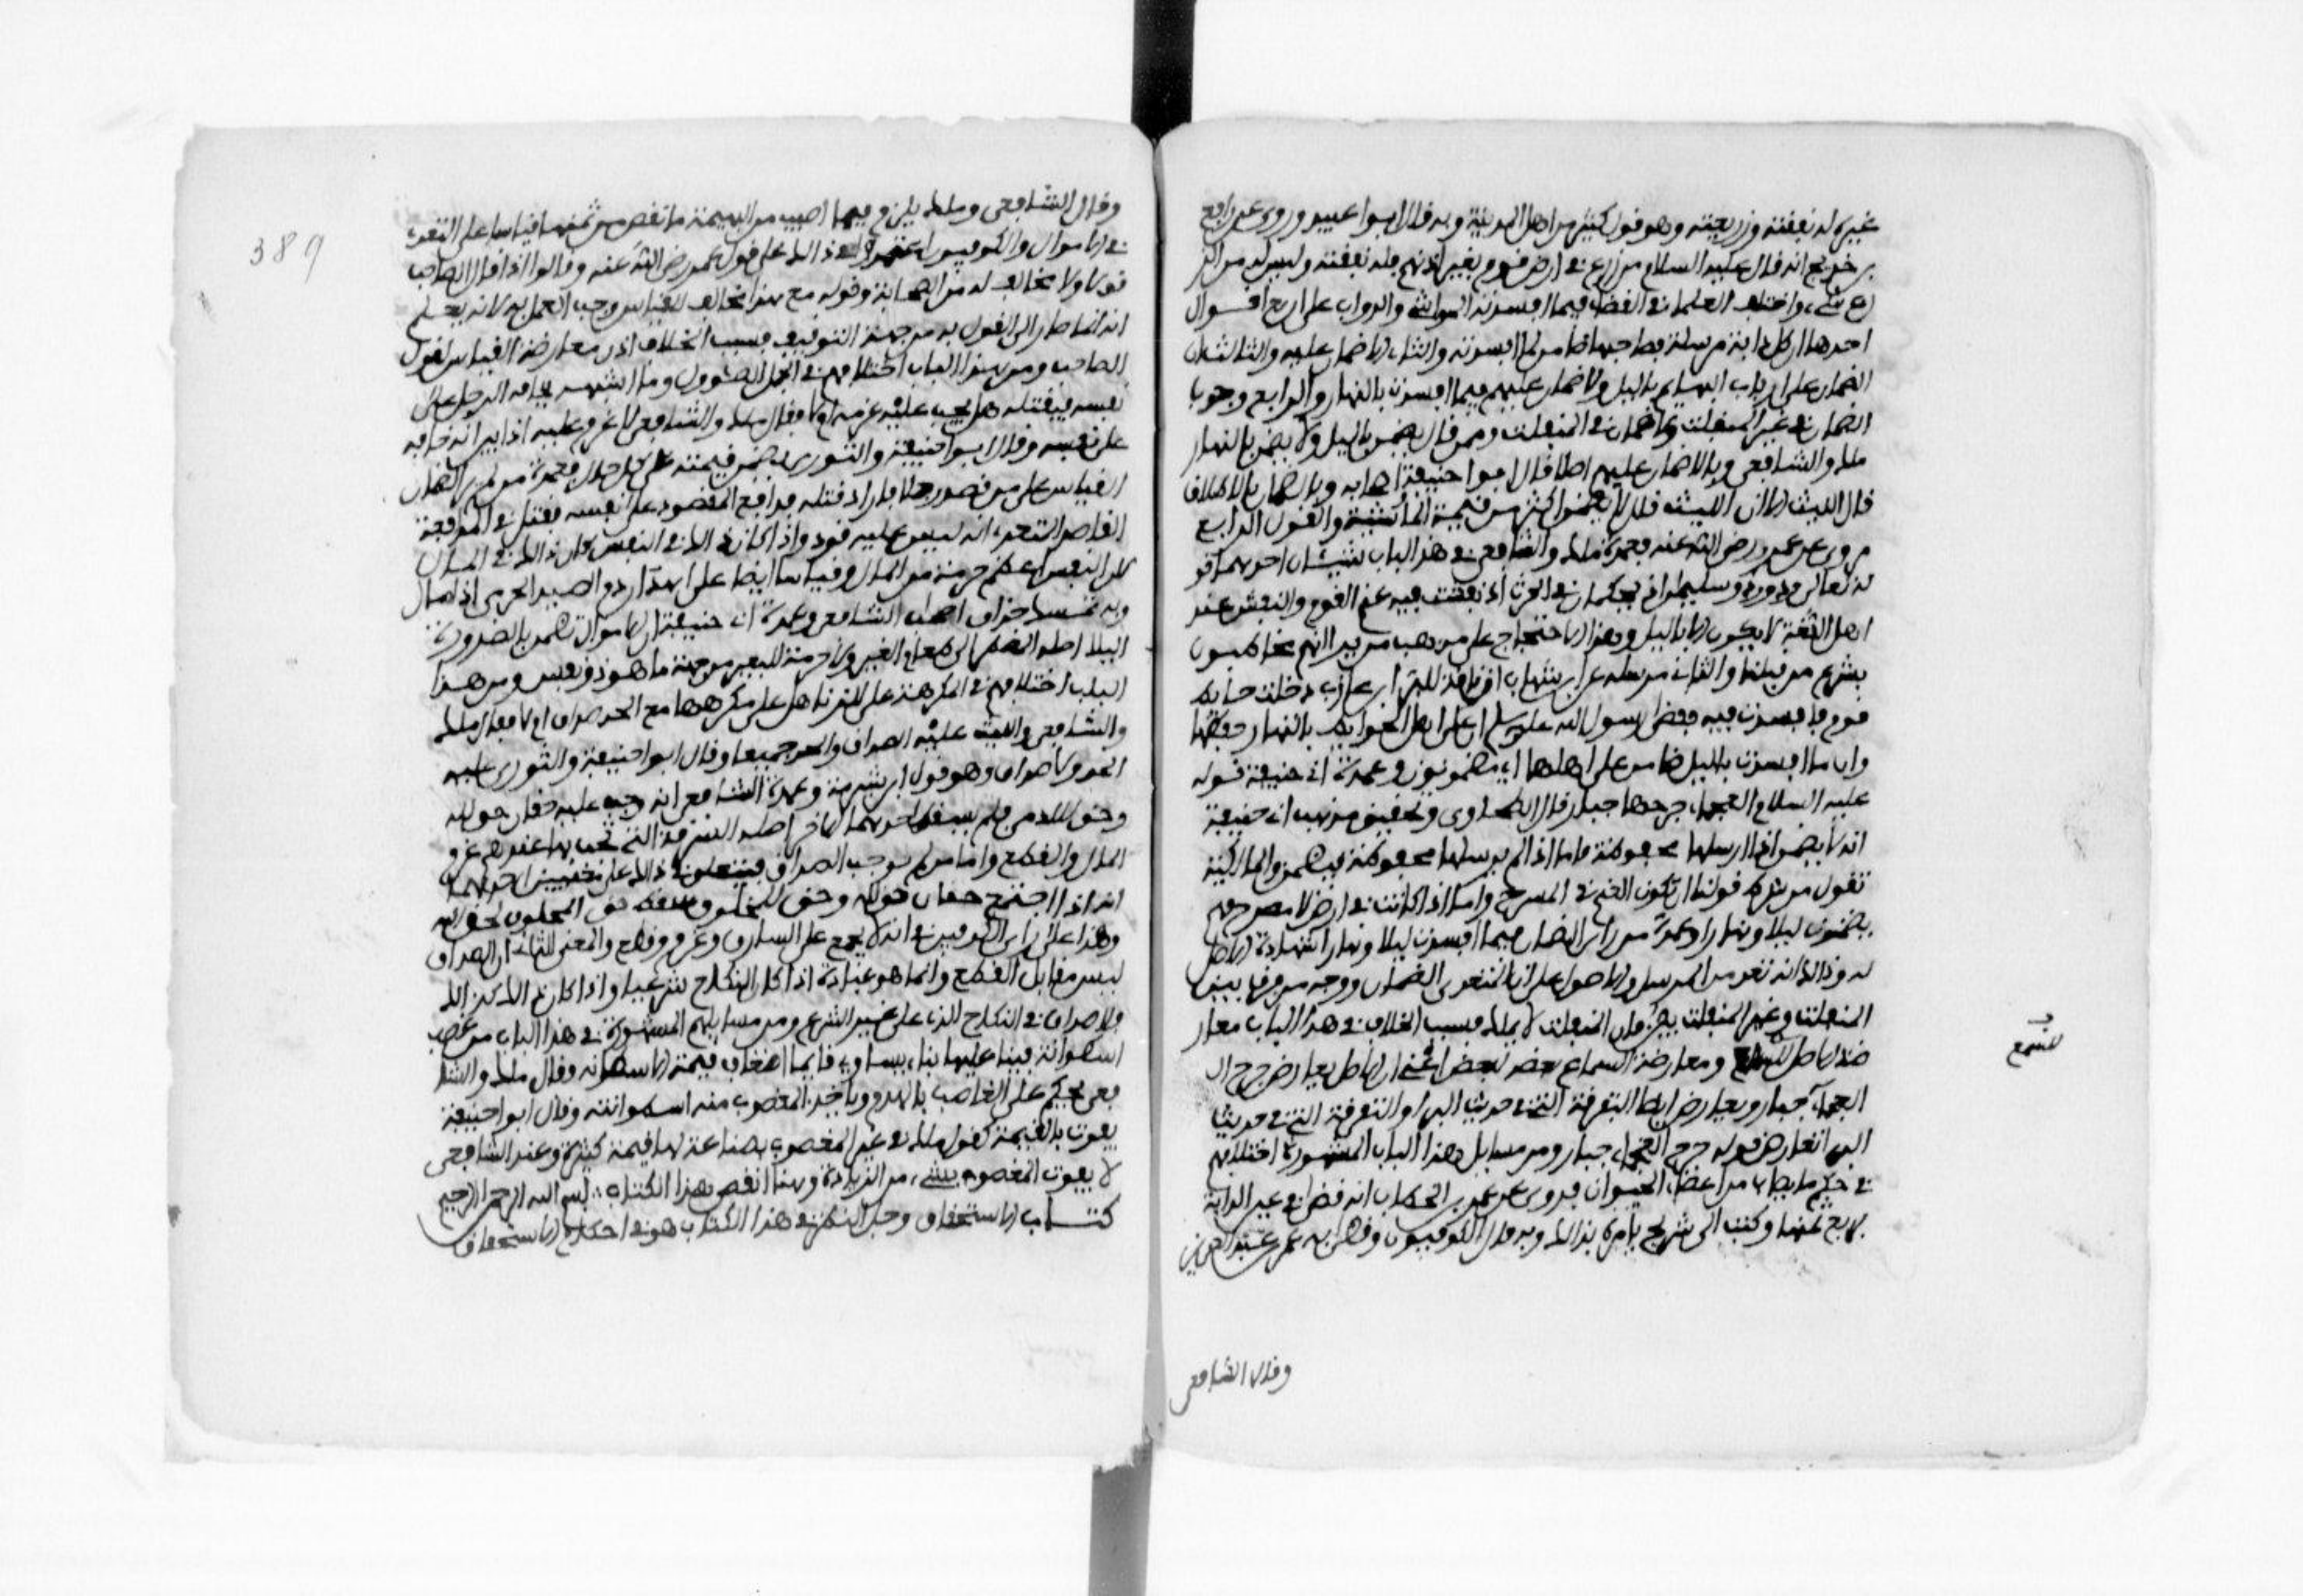 غيره له نفقته وزريعته وهو قول كثير من اهل المدينة وبه قال ابوا عبيد وروي عن رافع
بن خديج انه قال عليه السلام من زرع في ارض قوم بغير اذنهم فله نفقته وليس له من الز
رع شيء واختلف العلماء في القضاء فيما افسدته المواشي والدواب على اربع اقوال
احدها ان كل دابة مرسلة فصاحبها ضامن لما افسدته والثاني الا ضمان عليه والثالث ان
الضمان على ارباب البهايم بالليل ولا ضمان عليهم فيما افسدت بالنهار والرابع وجوب
الضمان في غير المنفلت ولا ضمان في المنفلت وممن قال يضمن بالليل ولا يضمن بالنهار
ملك والشافعي وبالا ضمان عليهم اصلا قال ابوا حنيفة واصحابه وبالضمان بالاطلاق
قال الليث الا ان الليث قال لا يضمن اكثر من قيمة الماشية والقول الرابع
مروي عن عمر رضي الله عنه فعمدة ملك والشافعي في هذا الباب شيئان احدهما قو
له تعالى وداوود وسليمان اذ يحكمان في الحرث اذ نفشت فيه غنم القوم والنفش عند
اهل اللغة لا يكون الا بالليل وهذا الاحتجاج على مذهب من يرى انهم مخاطبون
بشرع من قبلنا والثاني مرسله عن ابن شهاب ان ناقة للبراء بن عازب دخلت حائط
قوم فافسدت فيه فقضى رسول الله صلى الله عليه وسلم ان على اهل الحوايط بالنهار حفظها
وان ما افسدت بالليل ضامن على اهلها اي مضمونون وعمدة ابي حنيفة قوله
عليه السلام العجماء جرحها جبار قال الطحاوي وتحقيق مذهب ابي حنيفة
انه لا يضمن اذا ارسلها محفوظة فاما اذا لم يرسلها محفوظة فيضمن والمالكية
تقول من شرط قولنا ان تكون الغنم في المسرح واما اذا كانت في ارض لا مسرح فهم
يضمنون ليلا ونهارا وعمدة من راى الضمان فيما افسدت ليلا ونهارا شهادة الاصل
له وذالك انه تعد من المرسل والاصول على ان المتعدي الضمان ووجه من فرق بين
المنفلت وغير المنفلت بين فان المنفلت لا يملك فسبب الخلاف في هذا الباب معار
ضة الاصل للسمع ومعارضة السماع بعضه لبعض اعني ان الاصل يعارض جرح ا
العجماء جبار ويعارض ايضا التفرقة التي في حديث البراء والتفرقة التي في حديث
البراء تعارض قوله جرح العجماء جبار ومن مسايل هذا الباب المشهورة اختلافهم
في حكم ما يصاب من اعضاء الحيوان فروي عن عمر بن الخطاب انه قضى في عين الدابة
بربع ثمنها وكتب الى شريح يامره بذالك وبه قال الكوفيون وقضى به عمر بن عبد العزيز
للسمع
وقال الشافعي
389
وقال الشافعي وملك يلزم فيما اصيب من البهيمة ما نقص من ثمنها قياسا على التعدي
في الاموال والكوفيون اعتمدوا في ذالك على قول عمر رضي الله عنه وقالوا اذا قال الصاحب
قولا ولا مخالف له من الصحابة وقوله مع هذا مخالف للقياس وجب العمل به لانه يعلم
انه انما صار الى القول به من جهة التوقيف فسبب الخلاف اذن معارضة القياس لقول
الصاحب ومن هذا الباب اختلافهم في الجمل الصئوول وما اشبهه يخافه الرجل على
نفسه فيقتله هل يجب عليه غرمه ام لا فقال ملك والشافعي لا غرم عليه اذا بين انه خافه
على نفسه وقال ابوا حنيفة والثوري يضمن قيمته على كل حال فعمدة من لم ير الضمان
القياس على من قصد رجلا فاراد قتله فدافع المقصود على نفسه فقتل في المدافعة
القاصد المتعدي انه ليس عليه قود واذا كان ذالك في النفس كان ذالك في المال
لان النفس اعظم حرمة من المال وقياسا ايضا على اهدار دم الصيد الحرمي اذا صال
وبه تمسك حذاق اصحاب الشافعي وعمدة ابي حنيفة ان الاموال تضمن بالضرورة
اليها اصله المضطر الى طعام الغير ولا حرمة للبعير من جهة ما هو ذو نفس ومن هذا
الباب اختلافهم في المكرهة على الزنا هل على مكرهها مع الحد صداق ام لا فقال ملك
والشافعي والليث عليه الصداق والحد جميعا وقال ابوا حنيفة والثوري عليه
الحد ولا صداق وهو قول ابن شبرمة وعمدة الشافعي انه وجب عليه حقان حق لله
وحق للادمي فلم يسقط احدهما الاخر اصله السرقة التي تجب بها عندهم غرم
المال والقطع واما من لم يوجب الصداق فيتعلق في ذالك على معنيين احدهما
انه اذا اجتمع حقان حق لله وحق للمخلوق سقط حق المخلوق لحق الله
وهذا على راي الكوفيين في انه لا يجمع على السارق غرم وقطع والمعنى الثاني ان الصداق
ليس مقابل القطع وانما هو عبادة اذا كان النكاح شرعيا واذا كان ذالك كذالك
فلا صداق في النكاح الذي على غير الشرع ومن مسايلهم المشهورة في هذا الباب من غصب
اسطوانة فبنا عليها بناء يساوي قايما اضعاف قيمة الاسطوانة فقال ملك والشا
فعي يحكم على الغاصب بالهدم وياخذ المغصوب منه اسطوانته وقال ابوا حنيفة
يفوت بالقيمة كقول ملك في غير المغصوب بصناعة لها قيمة كثيرة وعند الشافعي
لا يفوت المغصوب بشيء من الزيادة وهنا انقضى هذا الكتاب بسم الله الرحمن الرحيم
كتاب الاستحقاق وجل النظر في هذا الكتاب هو في احكام الاستحقاق